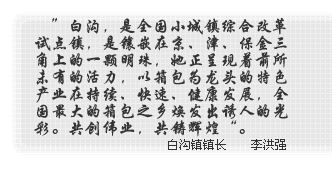 ”白沟，是全国小城镇综合改革
试点镇，是镶嵌在京、津、保金三
角上的一颗明珠，她正呈现着前所
未有的活力，以箱包为龙头的特色
产业在持续、快速、健康发展，全
国最大的箱包之乡焕发出诱人的光
彩。共创伟业，共铸辉煌“。
白沟镇镇长 李洪强